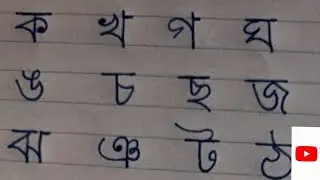 ক খ গ ঘ
ঙ চ ছ জ
ঝ ঞ ট ঠ